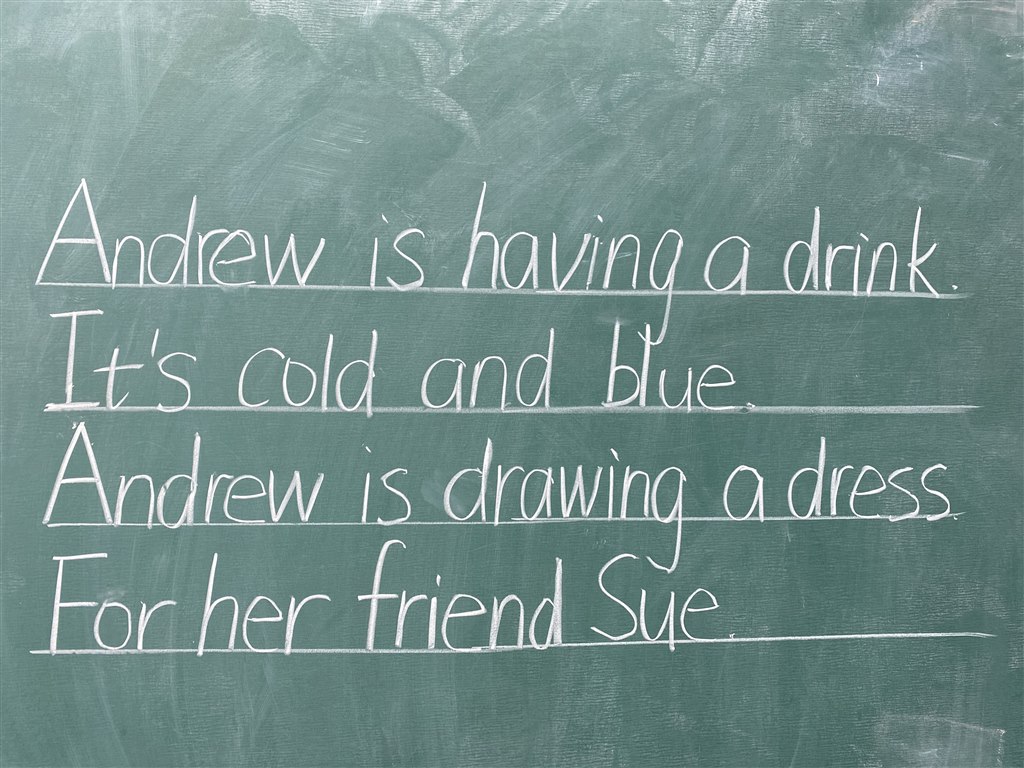 Andrew is having a drink.
It's cold and blue.
Andrew is drawing a dress.
For her friend Sue.